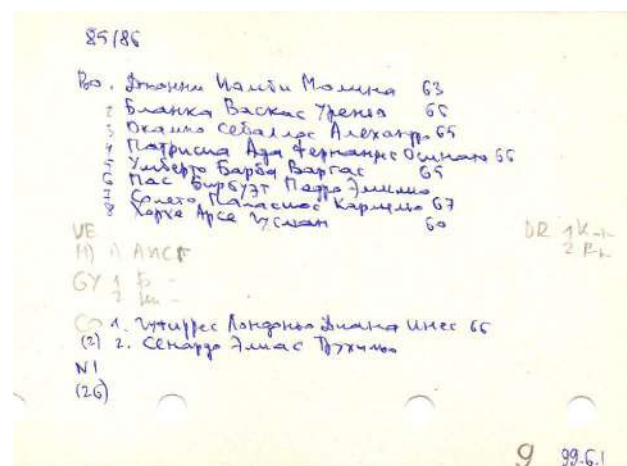 85/86
Во. Джонни Молина 63
2 Бланка Васкас Уренья 66
3 Окампо Себаллос Алехандро 65
4 Патрисиа Ада Фернандес 66
5 Умберто Барба Варгас 65
6 Пас Бирбуэт Педро Эмилио
7 Солето Паласиос Кармельо 67
8 Хорхе Арсе Гусман 60
VE DR 1
H) 2
GY 1 Б -
2
Co 1. Гутиррес Лондоньо Диана Инес 66
(2) 2. Элиас Трухильо
NI
(26)
9 99.6.1